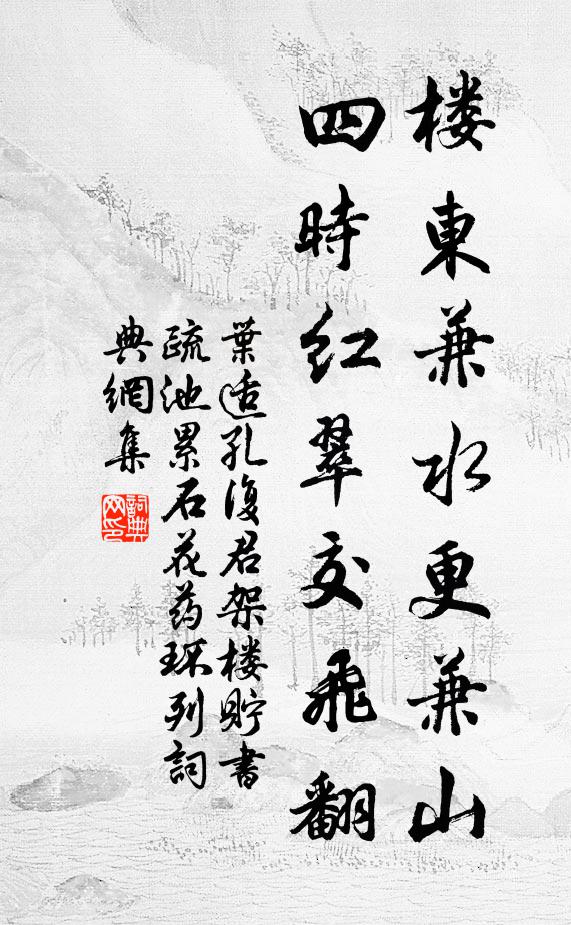 楼東兼水更兼山
四時红翠交飛翻
葉适孔復君架楼貯書
疏池累石花药环列詞
典網集
詞典
网印